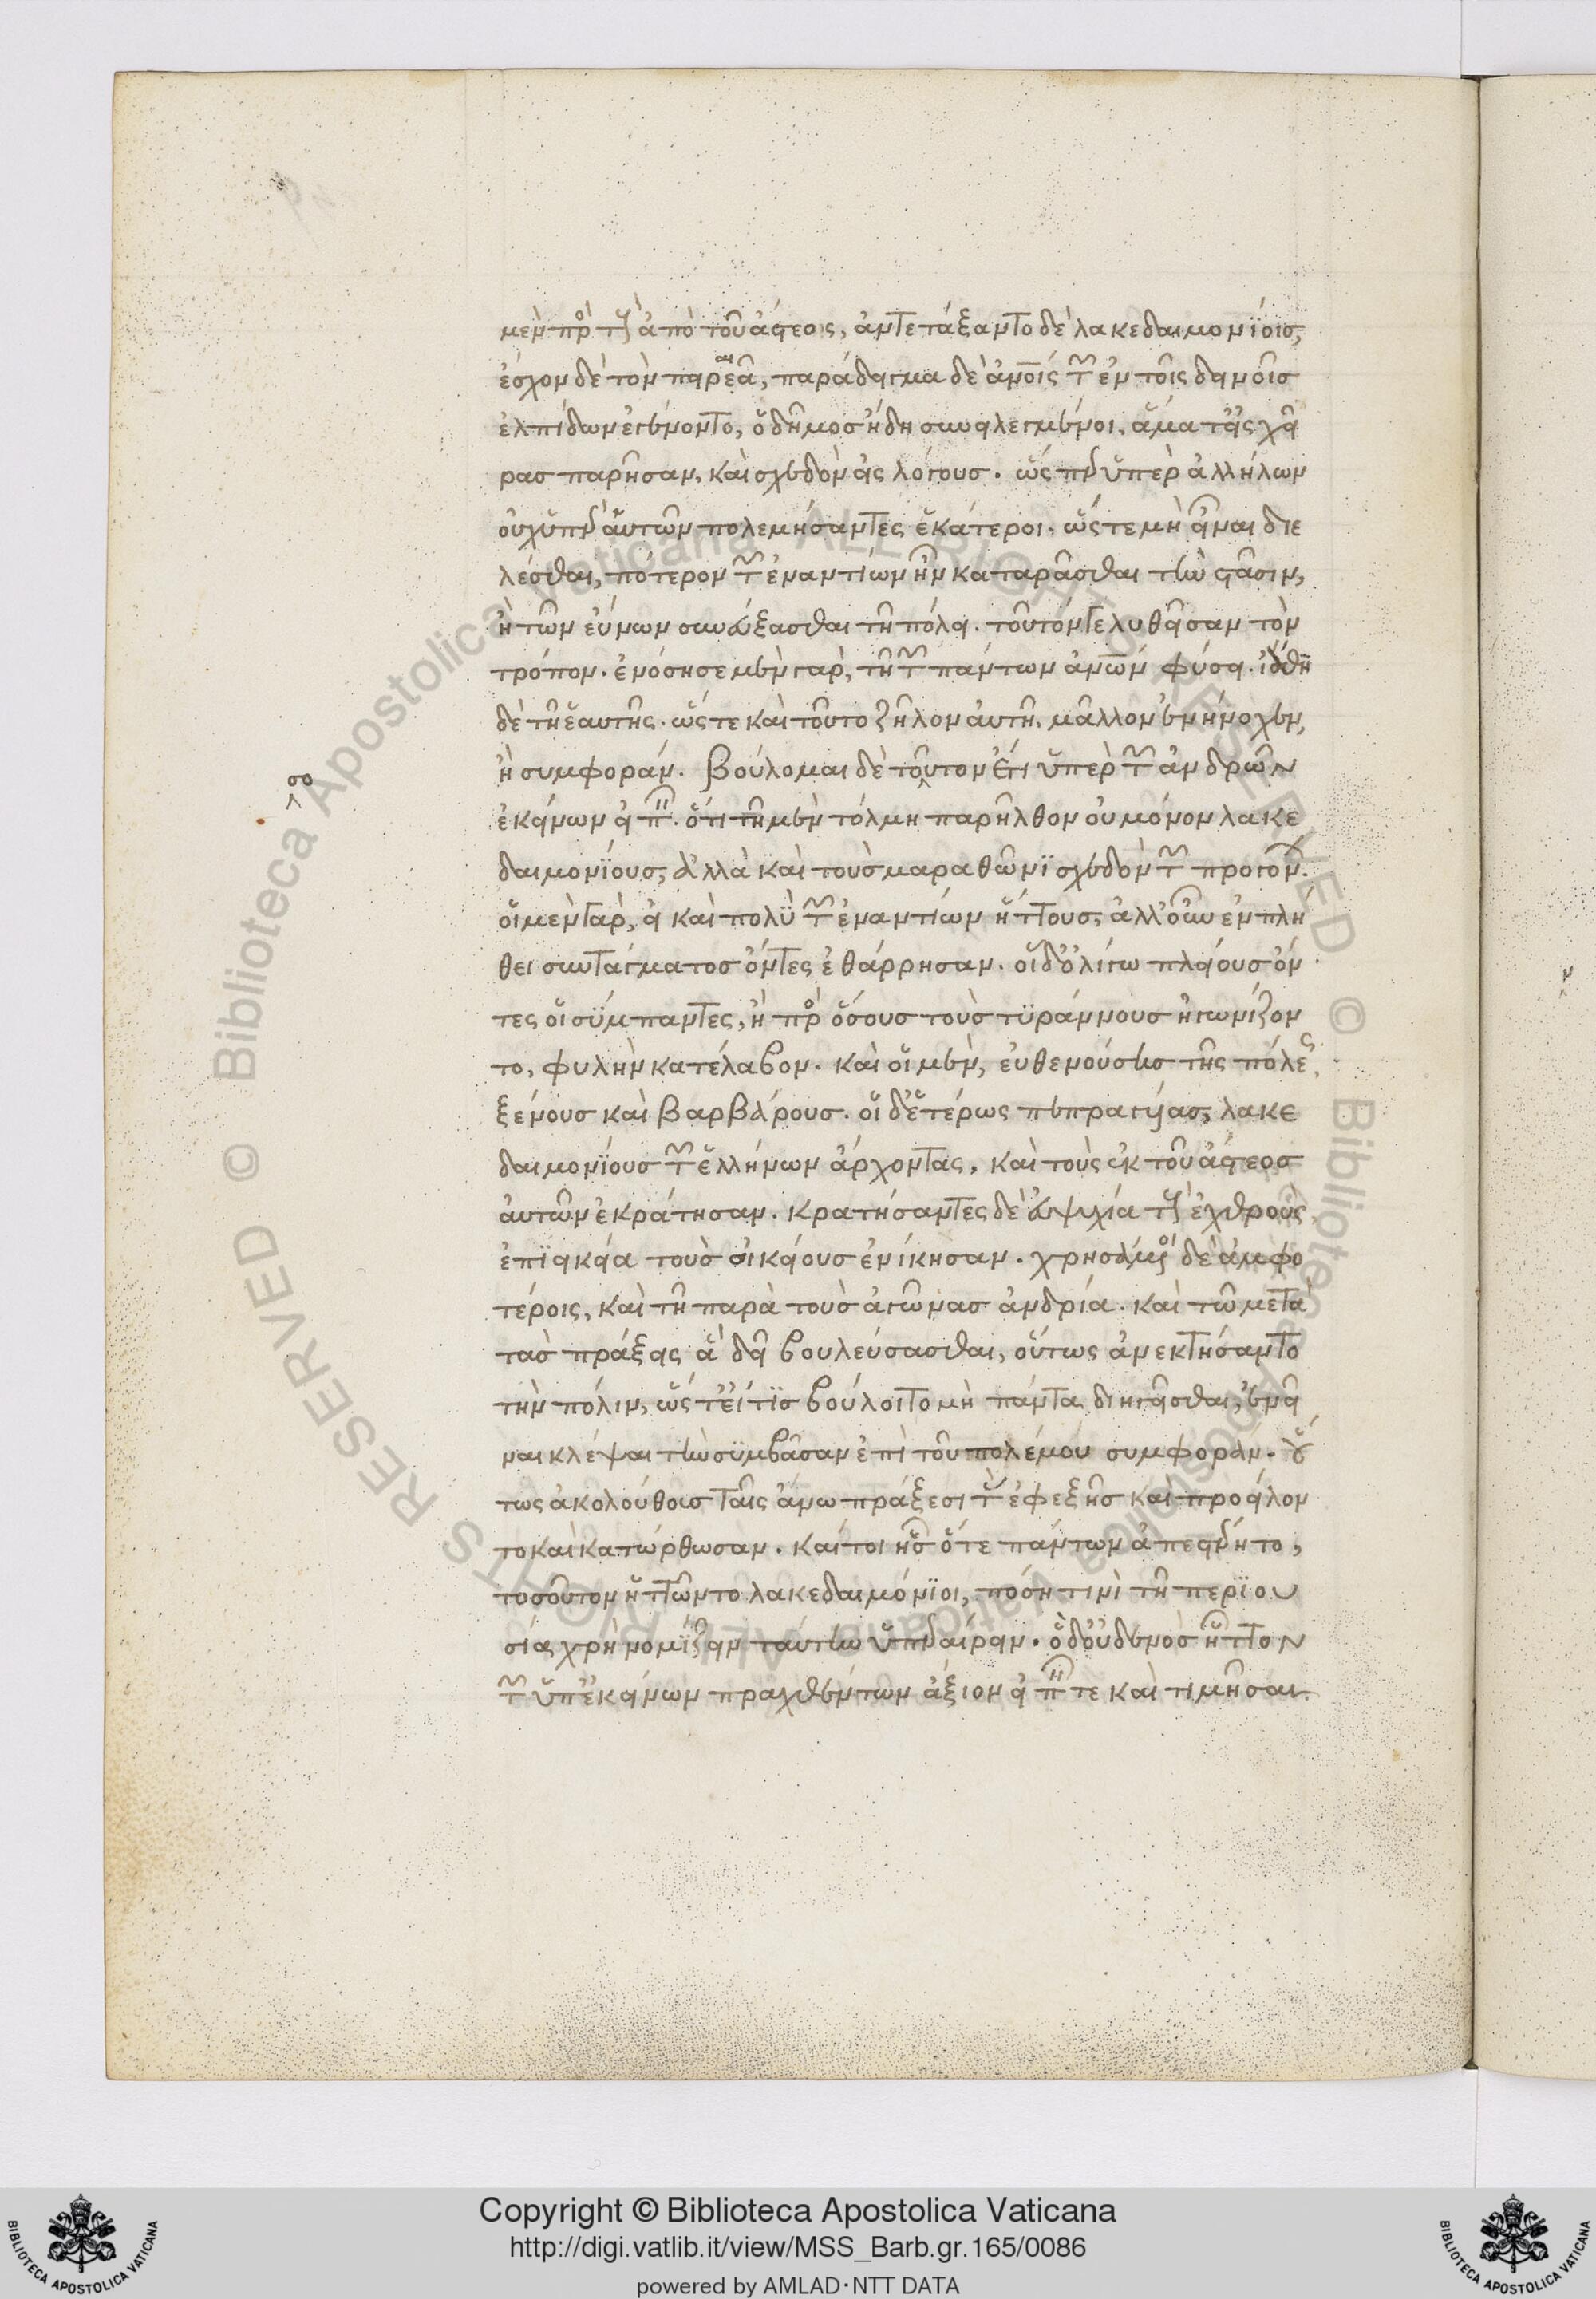 μὲν πρὸς τοὺς ἀπὸ τοῦ ἄστεος, ἀντετάξαντο δὲ λακεδαιμονίοις,
ἔσχον δὲ τὸν παρεᾶ, παράδειγμα δὲ ἀνοις τῶν ἐν τοῖς δεινοῖς
ἐλπίδων ἐγένοντο, ὁ δῆμος ἤδη συνειλεγμένοι. ἅμα τ᾽ εἰς χεῖ
ρας παρῆσαν, καὶ σχεδὸν εἰς λόγους. ὥσπερ ὑπὲρ ἀλλήλων
οὐχ ὑπὲρ αὑτῶν πολεμήσαντες ἑκάτεροι. ὥστε μὴ εἶναι διε
λέσθαι, πότερον τῶν ἐναντίων ἦν καταρᾶσθαι τὴν στάσιν,
ἢ τῶν εὔνων συνεύξασθαι τῇ πόλει. τουτόν γε λυθεῖσαν τὸν
τρόπον. ἐνόσησε μὲν γὰρ, τῇ τῶν πάντων ἀνων φύσει. ἰάθη
δὲ τῇ ἑαυτῆς. ὥστε καὶ τοῦτο ζῆλον αὐτῇ, μᾶλλον ἐνήνοχεν,
ἢ συμφοράν. βούλομαι δὲ τοῦτον ἔτι ὑπὲρ τῶν ἀνδρῶν
ἐκείνων εἰπεῖν. ὅτι τῇ μὲν τόλμῃ παρῆλθον οὐ μόνον λακε
δαιμονίους, ἀλλὰ καὶ τοὺς μαραθῶνι σχεδὸν τῶν προγόνων.
οἱ μὲν γὰρ, εἰ καὶ πολὺ τῶν ἐναντίων ἥττους, ἀλλ᾽ οὖν ἐν πλή
θει συντάγματος ὄντες ἐθάρρησαν. οἱ δ᾽ ὀλίγω πλείους ὄν
τες οἱ σύμπαντες, ἢ πρὸς ὅσους τοὺς τυράννους ἠγωνίζον
το, φυλὴν κατέλαβον. καὶ οἱ μὲν, εὐθενούσης τῆς πόλεως,
ξένους καὶ βαρβάρους. οἱ δ᾽ ἑτέρως πεπραγυίας, λακε
δαιμονίους τῶν ἑλλήνων ἄρχοντας, καὶ τοὺς ἐκ τοῦ ἄστεος
αὐτῶν ἐκράτησαν. κρατήσαντες δὲ εὐψυχία τοὺς ἐχθροὺς,
ἐπιεικεία τοὺς οἰκείους ἐνίκησαν. χρησάμενοι δὲ ἀμφο
τέροις, καὶ τῇ παρὰ τοὺς ἀγῶνας ἀνδρία. καὶ τῶ μετὰ
τὰς πράξεις ἃ δεῖ βουλεύσασθαι, οὕτως ἀνεκτήσαντο
τὴν πόλιν, ὥστ᾽ εἴ τις βούλοιτο μὴ πάντα διηγεῖσθαι, ἐνεῖ
ναι κλέψαι τὴν συμβᾶσαν ἐπὶ τοῦ πολέμου συμφοράν. οὕ
τως ἀκολούθως ταῖς ἄνω πράξεσι τῶν ἐφεξῆς καὶ προείλον
το καὶ κατώρθωσαν. καίτοι ἧς ὅτε πάντων ἀπεστέρητο,
τοσοῦτον ἡττῶντο λακεδαιμόνιοι, πόση τινὶ τῇ περιου
σία χρὴ νομίζειν ταύτην ὑπεραίρειν. ὃ δ᾽ οὐδενὸς ἧττον
τῶν ὑπ᾽ ἐκείνων πραχθέντων ἄξιον εἰπεῖν τε καὶ τιμῆσαι.